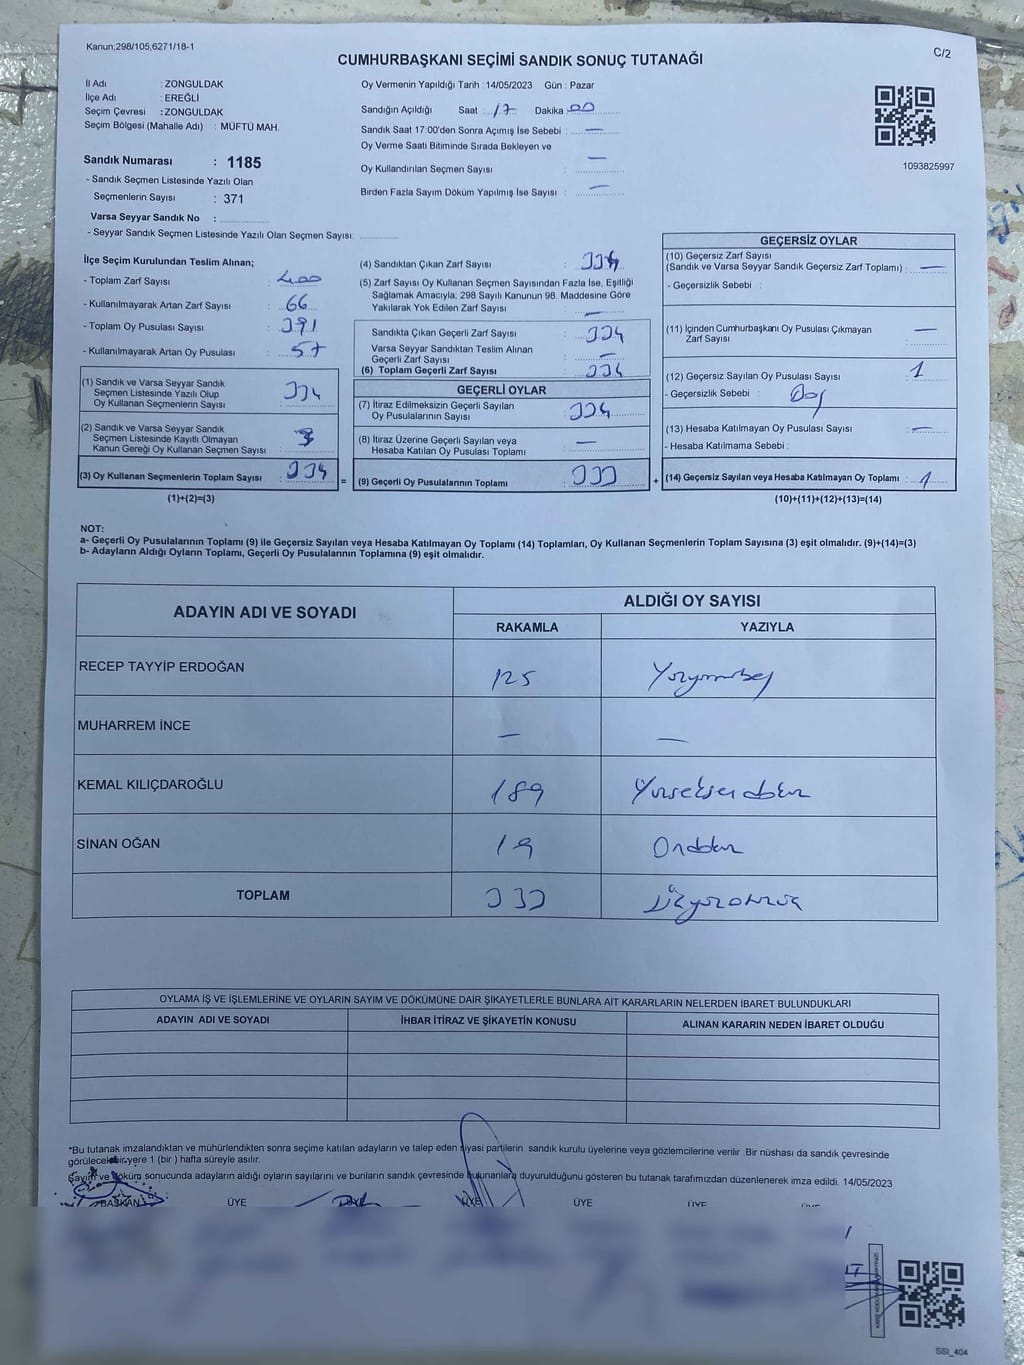 Kanun;298/105;6271/18-1
C/2
CUMHURBAŞKANI SEÇİMİ SANDIK SONUÇ TUTANAĞI
İl Adı : ZONGULDAK
İlçe Adı : EREĞLİ
Seçim Çevresi : ZONGULDAK
Seçim Bölgesi (Mahalle Adı) : MÜFTÜ MAH.
Sandık Numarası : 1185
- Sandık Seçmen Listesinde Yazılı Olan
Seçmenlerin Sayısı : 371
Varsa Seyyar Sandık No :
- Seyyar Sandık Seçmen Listesinde Yazılı Olan Seçmen Sayısı:
Oy Vermenin Yapıldığı Tarih : 14/05/2023 Gün : Pazar
Sandığın Açıldığı Saat : 17 Dakika : 00
Sandık Saat 17:00'den Sonra Açımış İse Sebebi : —
Oy Verme Saati Bitiminde Sırada Bekleyen ve
Oy Kullandırılan Seçmen Sayısı : —
Birden Fazla Sayım Döküm Yapılmış İse Sayısı : —
1093825997
İlçe Seçim Kurulundan Teslim Alınan;
- Toplam Zarf Sayısı : 400
- Kullanılmayarak Artan Zarf Sayısı : 66
- Toplam Oy Pusulası Sayısı : 391
- Kullanılmayarak Artan Oy Pusulası : 57
(1) Sandık ve Varsa Seyyar Sandık
Seçmen Listesinde Yazılı Olup
Oy Kullanan Seçmenlerin Sayısı : 334
(2) Sandık ve Varsa Seyyar Sandık
Seçmen Listesinde Kayıtlı Olmayan
Kanun Gereği Oy Kullanan Seçmen Sayısı :
(3) Oy Kullanan Seçmenlerin Toplam Sayısı : 334
(1)+(2)=(3)
(4) Sandıktan Çıkan Zarf Sayısı : 334
(5) Zarf Sayısı Oy Kullanan Seçmen Sayısından Fazla İse, Eşitliği
Sağlamak Amacıyla; 298 Sayılı Kanunun 98. Maddesine Göre
Yakılarak Yok Edilen Zarf Sayısı : —
Sandıkta Çıkan Geçerli Zarf Sayısı : 334
Varsa Seyyar Sandıktan Teslim Alınan
Geçerli Zarf Sayısı : —
(6) Toplam Geçerli Zarf Sayısı : 334
GEÇERLİ OYLAR
(7) İtiraz Edilmeksizin Geçerli Sayılan
Oy Pusulalarının Sayısı : 334
(8) İtiraz Üzerine Geçerli Sayılan veya
Hesaba Katılan Oy Pusulası Toplamı : —
= (9) Geçerli Oy Pusulalarının Toplamı : 333
GEÇERSİZ OYLAR
(10) Geçersiz Zarf Sayısı
(Sandık ve Varsa Seyyar Sandık Geçersiz Zarf Toplamı) : —
- Geçersizlik Sebebi :
(11) İçinden Cumhurbaşkanı Oy Pusulası Çıkmayan
Zarf Sayısı : —
(12) Geçersiz Sayılan Oy Pusulası Sayısı : 1
- Geçersizlik Sebebi : Boş
(13) Hesaba Katılmayan Oy Pusulası Sayısı : —
- Hesaba Katılmama Sebebi :
+ (14) Geçersiz Sayılan veya Hesaba Katılmayan Oy Toplamı : 1
(10)+(11)+(12)+(13)=(14)
NOT:
a- Geçerli Oy Pusulalarının Toplamı (9) ile Geçersiz Sayılan veya Hesaba Katılmayan Oy Toplamı (14) Toplamları, Oy Kullanan Seçmenlerin Toplam Sayısına (3) eşit olmalıdır. (9)+(14)=(3)
b- Adayların Aldığı Oyların Toplamı, Geçerli Oy Pusulalarının Toplamına (9) eşit olmalıdır.
ADAYIN ADI VE SOYADI ALDIĞI OY SAYISI
RAKAMLA YAZIYLA
RECEP TAYYİP ERDOĞAN 125 Yüzyirmibeş
MUHARREM İNCE — —
KEMAL KILIÇDAROĞLU 189 Yüzseksendokuz
SİNAN OĞAN 19 Ondokuz
TOPLAM 333 Üçyüzotuzüç
OYLAMA İŞ VE İŞLEMLERİNE VE OYLARIN SAYIM VE DÖKÜMÜNE DAİR ŞİKAYETLERLE BUNLARA AİT KARARLARIN NELERDEN İBARET BULUNDUKLARI
ADAYIN ADI VE SOYADI İHBAR İTİRAZ VE ŞİKAYETİN KONUSU ALINAN KARARIN NEDEN İBARET OLDUĞU
*Bu tutanak imzalandıktan ve mühürlendikten sonra seçime katılan adayların ve talep eden siyasi partilerin sandık kurulu üyelerine veya gözlemcilerine verilir. Bir nüshası da sandık çevresinde
görülecek bir yere 1 (bir ) hafta süreyle asılır.
Sayım ve döküm sonucunda adayların aldığı oyların sayılarını ve bunların sandık çevresinde bulunanlara duyurulduğunu gösteren bu tutanak tarafımızdan düzenlenerek imza edildi. 14/05/2023
BAŞKAN ÜYE ÜYE ÜYE ÜYE ÜYE
SSI_404